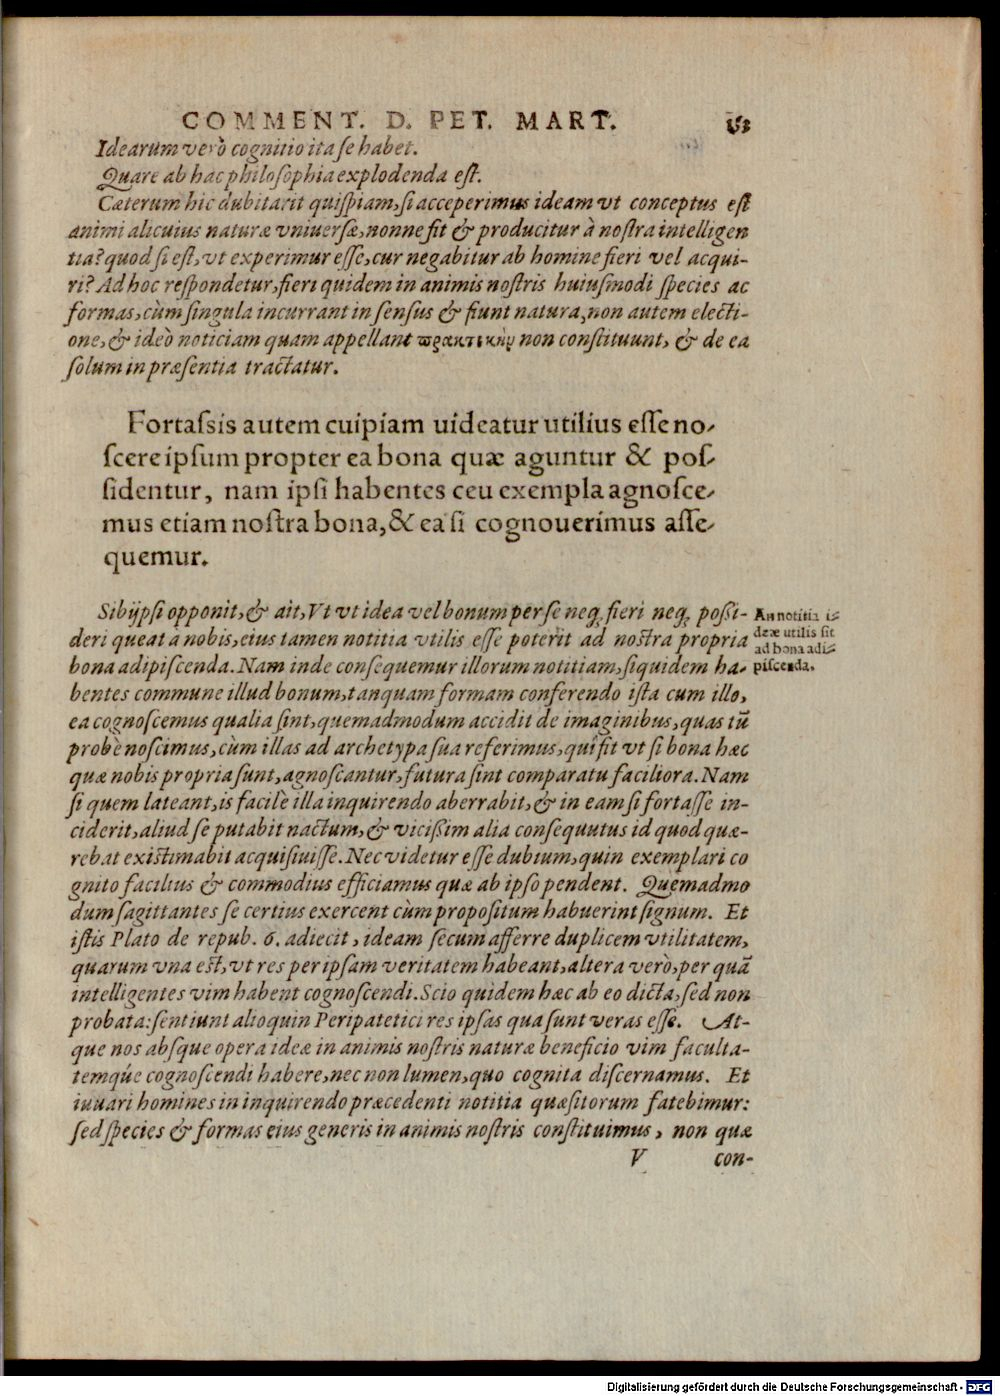 COMMENT. D. PET. MART. 153
Idearum verò cognitio ita se habet.
Quare ab hac philosophia explodenda est.
Cæterum hic dubitarit quispiam, si acceperimus ideam vt conceptus est
animi alicuius naturæ vniuersæ, nonne fit & producitur à nostra intelligen
tia? quod si est, vt experimur esse, cur negabitur ab homine fieri vel acqui-
ri? Ad hoc respondetur, fieri quidem in animis nostris huiusmodi species ac
formas, cùm singula incurrant in sensus & fiunt natura, non autem electi-
one, & ideò noticiam quam appellant πρακτικὴν non constituunt, & de ea
solum in præsentia tractatur.
Fortassis autem cuipiam uideatur utilius esse no-
scere ipsum propter ea bona quæ aguntur & pos-
sidentur, nam ipsi habentes ceu exempla agnosce-
mus etiam nostra bona, & ea si cognouerimus asse-
quemur.
Sibijpsi opponit, & ait, Vt vt idea vel bonum per se neq; fieri neq; possi-
deri queat a nobis, eius tamen notitia vtilis esse poterit ad nostra propria
bona adipiscenda. Nam inde consequemur illorum notitiam, siquidem ha-
bentes commune illud bonum, tanquam formam conferendo ista cum illo,
ea cognoscemus qualia sint, quemadmodum accidit de imaginibus, quas tū
probè noscimus, cùm illas ad archetypa sua referimus, qui fit vt si bona hæc
quæ nobis propria sunt, agnoscantur, futura sint comparatu faciliora. Nam
si quem lateant, is facilè illa inquirendo aberrabit, & in eam si fortasse in-
ciderit, aliud se putabit nactum, & vicissim alia consequutus id quod quæ-
rebat existimabit acquisiuisse. Nec videtur esse dubium, quin exemplari co
gnito facilius & commodius efficiamus quæ ab ipso pendent. Quemadmo
dum sagittantes se certius exercent cùm propositum habuerint signum. Et
istis Plato de repub. 6. adiecit, ideam secum afferre duplicem vtilitatem,
quarum vna est, vt res per ipsam veritatem habeant, altera verò, per quā
intelligentes vim habent cognoscendi. Scio quidem hæc ab eo dicta, sed non
probata: sentiunt alioquin Peripatetici res ipsas qua sunt veras esse. At-
que nos absque opera ideæ in animis nostris naturæ beneficio vim faculta-
temqúe cognoscendi habere, nec non lumen, quo cognita discernamus. Et
iuuari homines in inquirendo præcedenti notitia quæsitorum fatebimur:
sed species & formas eius generis in animis nostris constituimus, non quæ
V con-
An notitia i-
deæ utilis sit
ad bona adi-
piscenda.
Digitalisierung gefördert durch die Deutsche Forschungsgemeinschaft - DFG